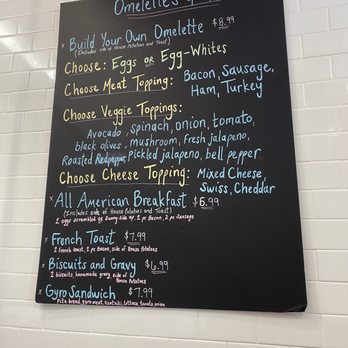 Omelette's
x Build Your Own Omelette $8.99
(Includes side of House Potatoes and Toast)
Choose: Eggs or Egg-Whites
Choose Meat Topping: Bacon, Sausage,
Ham, Turkey
Choose Veggie Toppings:
Avocado, spinach, onion, tomato,
black olives, mushroom, fresh jalapeno,
Roasted Redpepper, pickled jalapeno, bell pepper
Choose Cheese Topping: Mixed Cheese,
Swiss, Cheddar
x All American Breakfast $6.99
(Includes side of House Potatoes and Toast)
2 eggs scrambled or Sunny-side up, 2 pc Bacon, 2 pc Sausage
x French Toast $7.99
2 French toast, 2 pc Bacon, side of House Potatoes
x Biscuits and Gravy $6.99
2 biscuits, homemade gravy, side of
House Potatoes
x Gyro Sandwich $7.99
Pita bread, gyro meat, tzatziki, lettuce, tomato, onion